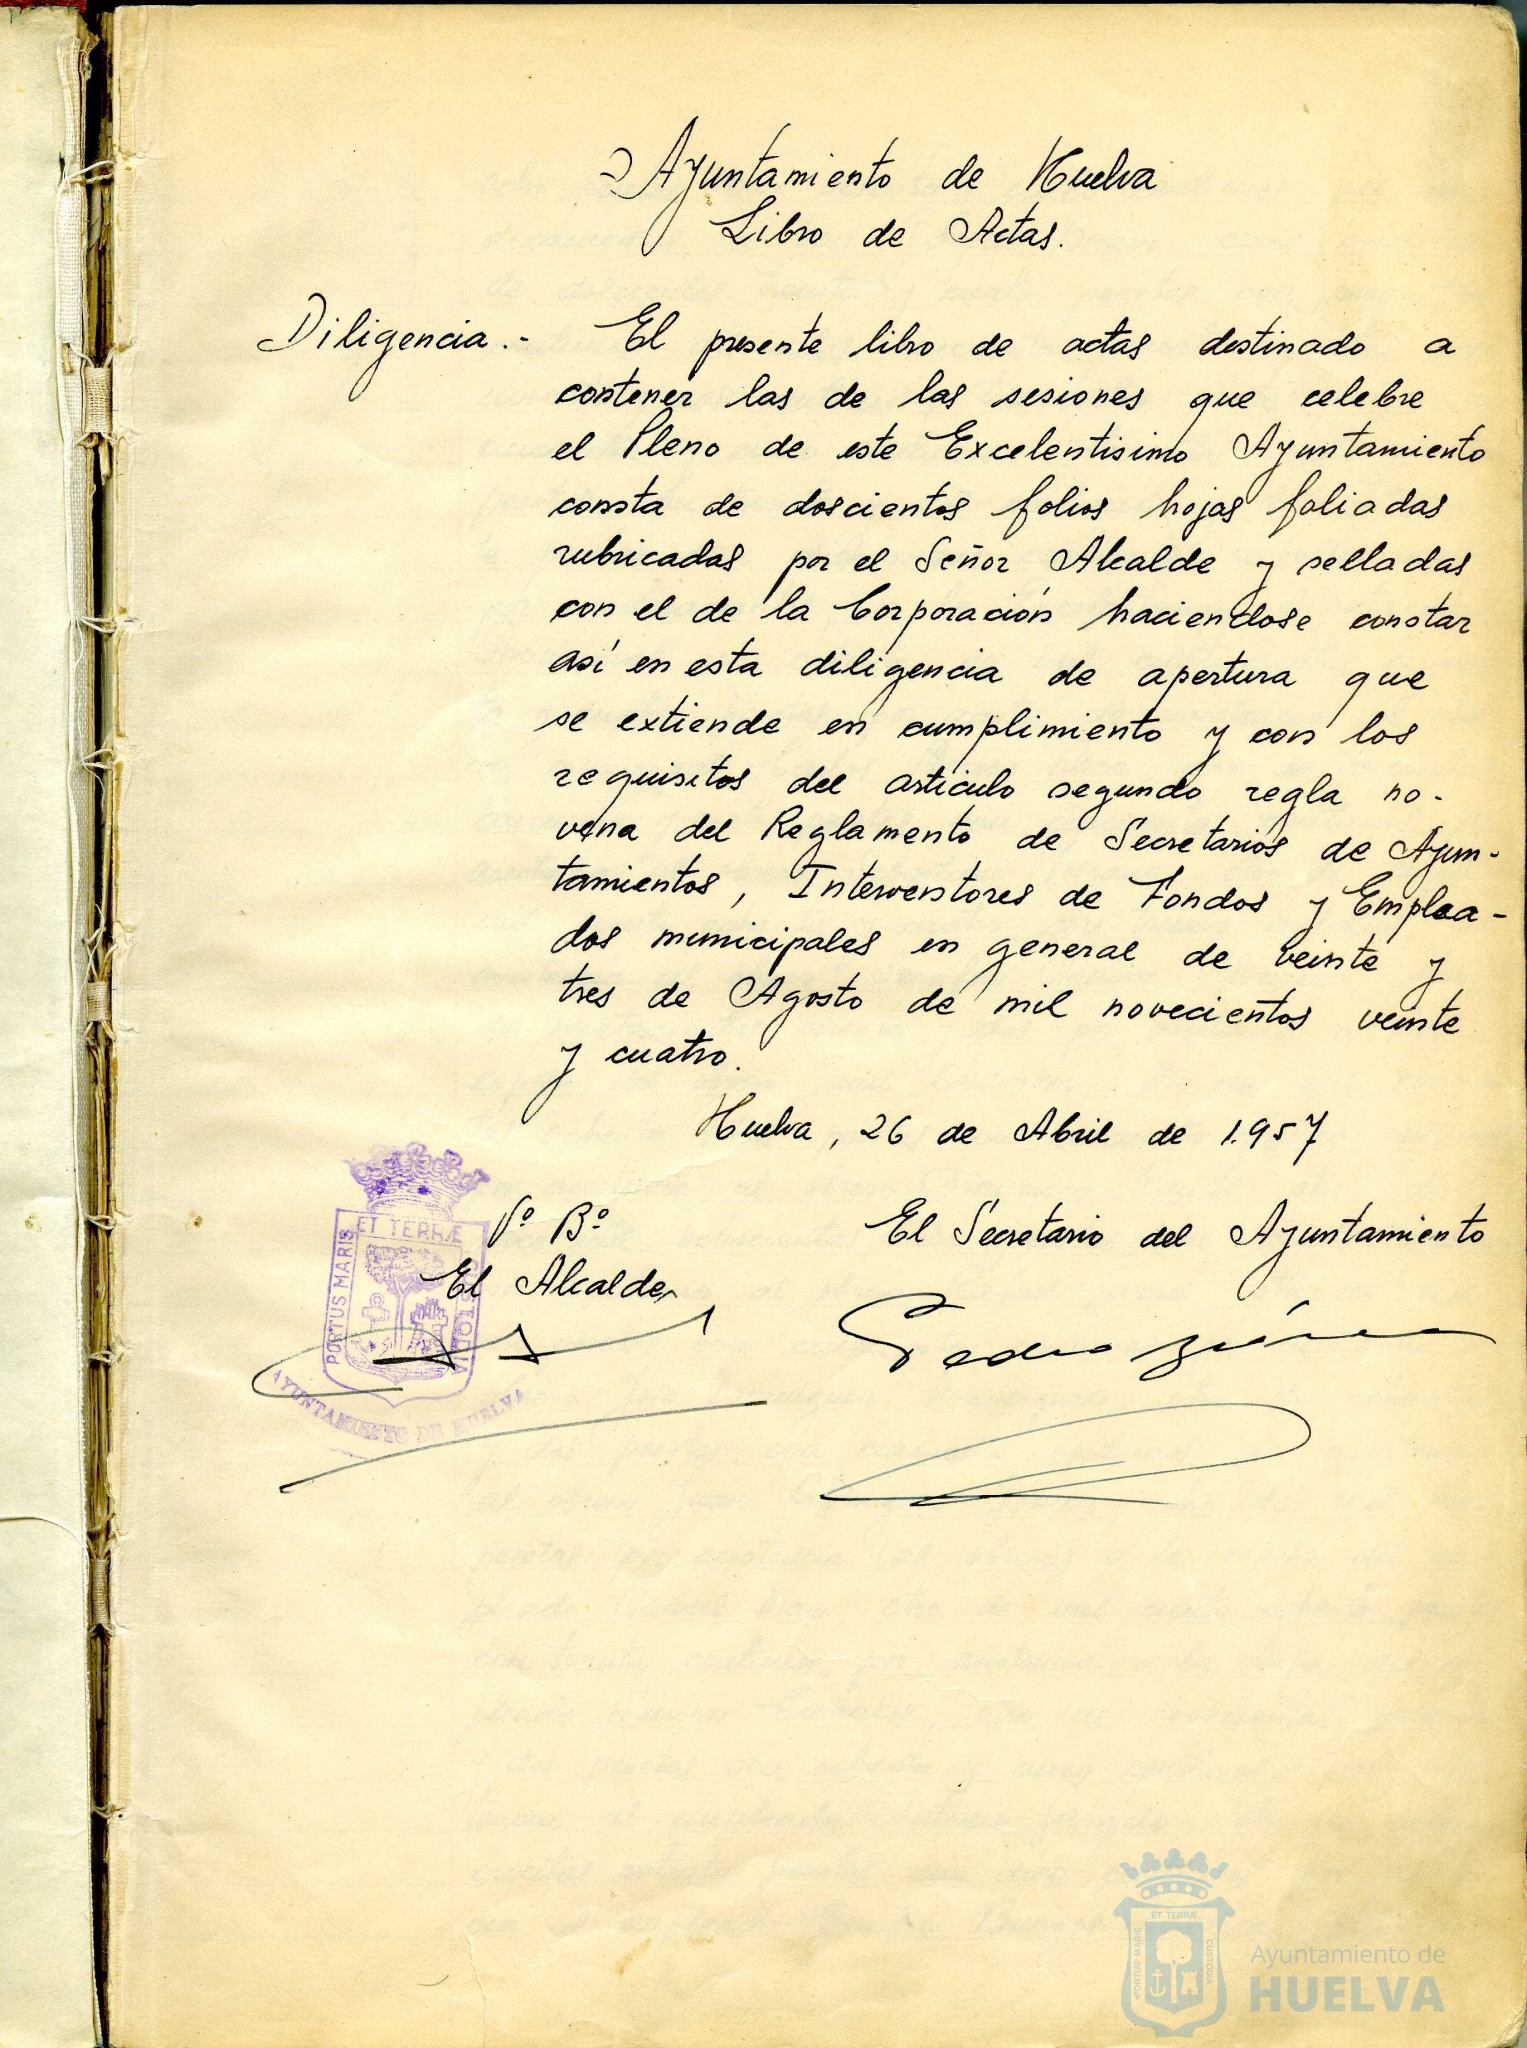 Ayuntamiento de Huelva
Libro de Actas.
Diligencia.- El presente libro de actas destinado a
contener las de las sesiones que celebre
el Pleno de este Excelentisimo Ayuntamiento
consta de doscientos folios hojas foliadas
rubricadas por el Señor Alcalde y selladas
con el de la Corporación haciendose constar
así en esta diligencia de apertura que
se extiende en cumplimiento y con los
requisitos del articulo segundo regla no-
vena del Reglamento de Secretarios de Ayun-
tamientos, Interventores de Fondos y Emplea-
dos municipales en general de veinte y
tres de Agosto de mil novecientos veinte
y cuatro.
Huelva, 26 de Abril de 1.957
Vº Bº
El Alcalde,
El Secretario del Ayuntamiento
Pedro
PORTUS MARIS ET TERRÆ CUSTODIA
AYUNTAMIENTO DE HUELVA
PORTUS MARIS ET TERRÆ CUSTODIA
Ayuntamiento de
HUELVA